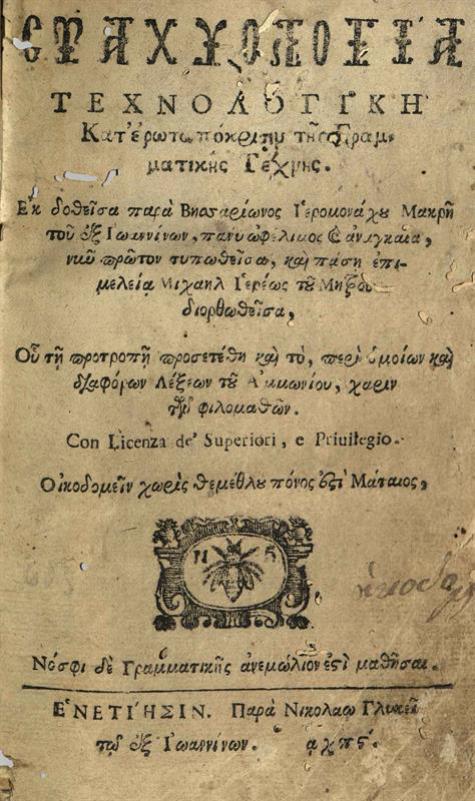 ΣΤΑΧΥΟΛΟΓΙΑ
ΤΕΧΝΟΛΟΓΙΚΗ
Κατ' ἐρωταπόκρισιν τῆς Γραμ-
ματικῆς Τέχνης.
Ἐκδοθεῖσα παρὰ Βησσαρίωνος Ἱερομονάχου Μακρῆ
τοῦ ἐξ Ἰωαννίνων, πάνυ ὠφέλιμος καὶ ἀναγκαία,
νῦν πρῶτον τυπωθεῖσα, καὶ πάσῃ ἐπι-
μελείᾳ Μιχαὴλ Ἱερέως τοῦ
διορθωθεῖσα,
Οὗ τῇ προτροπῇ προσετέθη καὶ τὸ, περὶ ὁμοίων καὶ
διαφόρων Λέξεων τοῦ Ἀμμωνίου, χάριν
τῶν φιλομαθῶν.
Con Licenza de' Superiori, e Priuilegio.
Οἰκοδομεῖν χωρὶς θεμέθλου πόνος ἐστὶ Μάταιος,
Νόσφι δὲ Γραμματικῆς ἀνεμώλιον ἐστὶ μαθῆσαι.
ἘΝΕΤΙΗΣΙΝ. Παρὰ Νικολάῳ Γλυκεῖ
τῷ ἐξ Ἰωαννίνων. ͵αχπϛ΄.